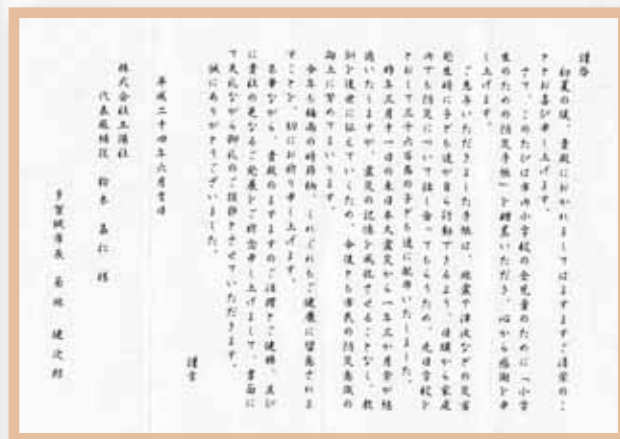 謹啓
初夏の候、貴殿におかれましてはますますご清栄のこ
ととお喜び申し上げます。
さて、このたびは市内小学校の全児童のために「小学
生のための防災手帳」を贈呈いただき、心から感謝を申
し上げます。
ご恵与いただきました手帳は、地震や津波などの災害
発生時に子ども達が自ら行動できるよう、日頃から家庭
内でも防災について話し合ってもらうため、先日学校を
とおして三千六百名の子ども達に配布いたしました。
昨年三月十一日の東日本大震災から一年三か月余が経
過いたしますが、震災の記憶を風化させることなく、教
訓を後世に伝えていくため、今後とも市民の防災意識の
向上に努めてまいります。
今年も梅雨の時節柄、くれぐれもご健康に留意されま
すことを、切にお祈り申し上げます。
末筆ながら、貴殿のますますのご活躍とご健勝、並び
に貴社の更なるご発展をご祈念申し上げまして、書面に
て失礼ながら御礼のご挨拶とさせていただきます。
誠にありがとうございました。
謹言
平成二十四年六月吉日
株式会社三陽社
代表取締役 鈴木 嘉仁 様
多賀城市長 菊地 健次郎